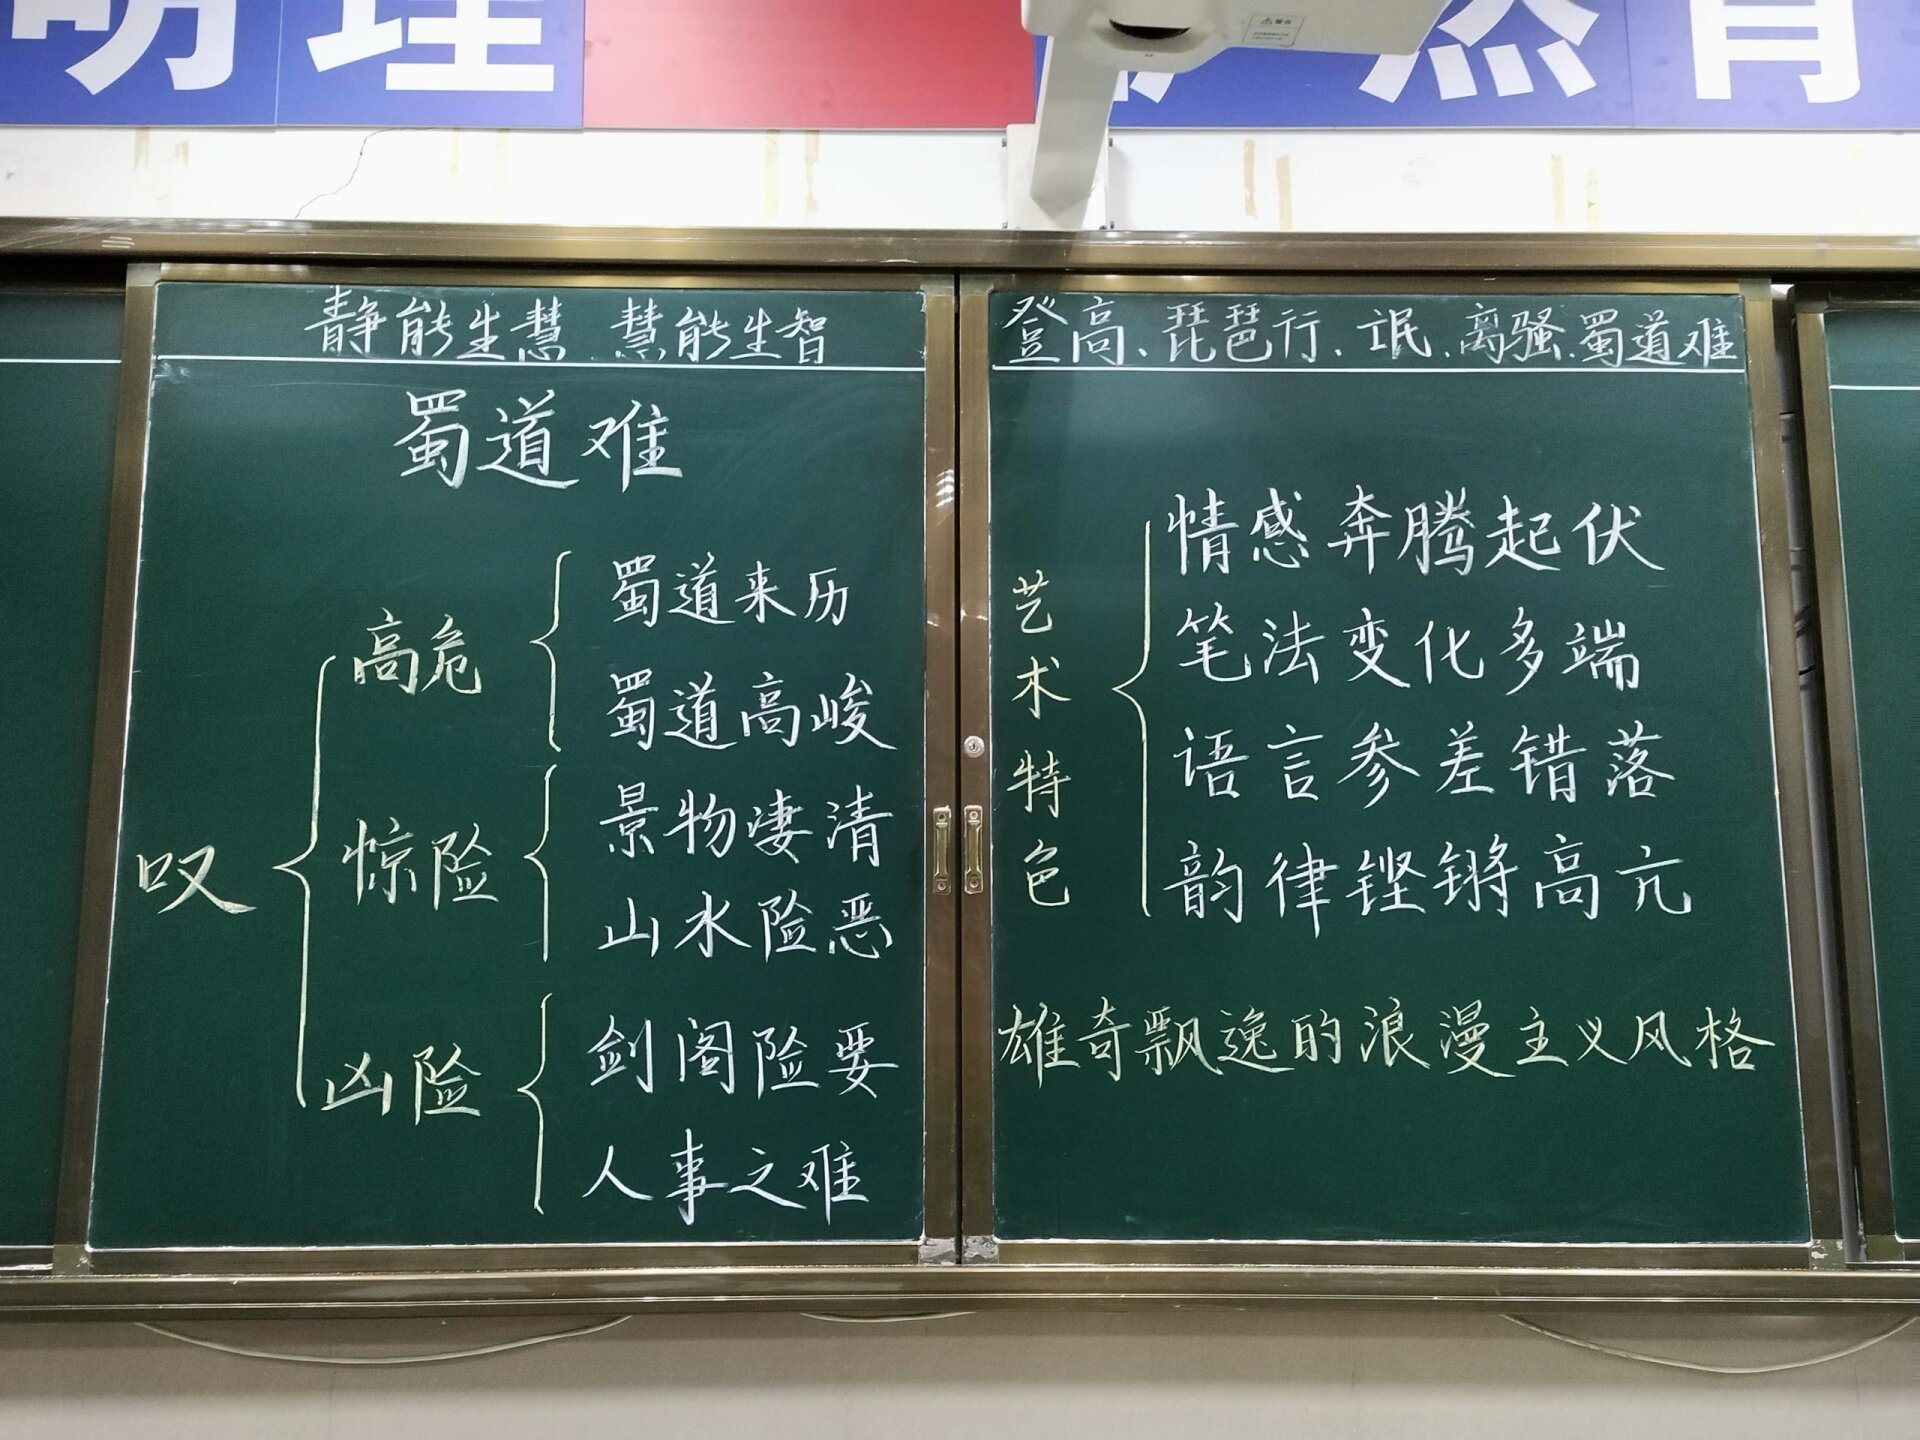 明理
杰育
静能生慧 慧能生智
蜀道难
叹
高危
蜀道来历
蜀道高峻
惊险
景物凄清
山水险恶
凶险
剑阁险要
人事之难
登高、琵琶行、氓、离骚、蜀道难
艺术特色
情感奔腾起伏
笔法变化多端
语言参差错落
韵律铿锵高亢
雄奇飘逸的浪漫主义风格